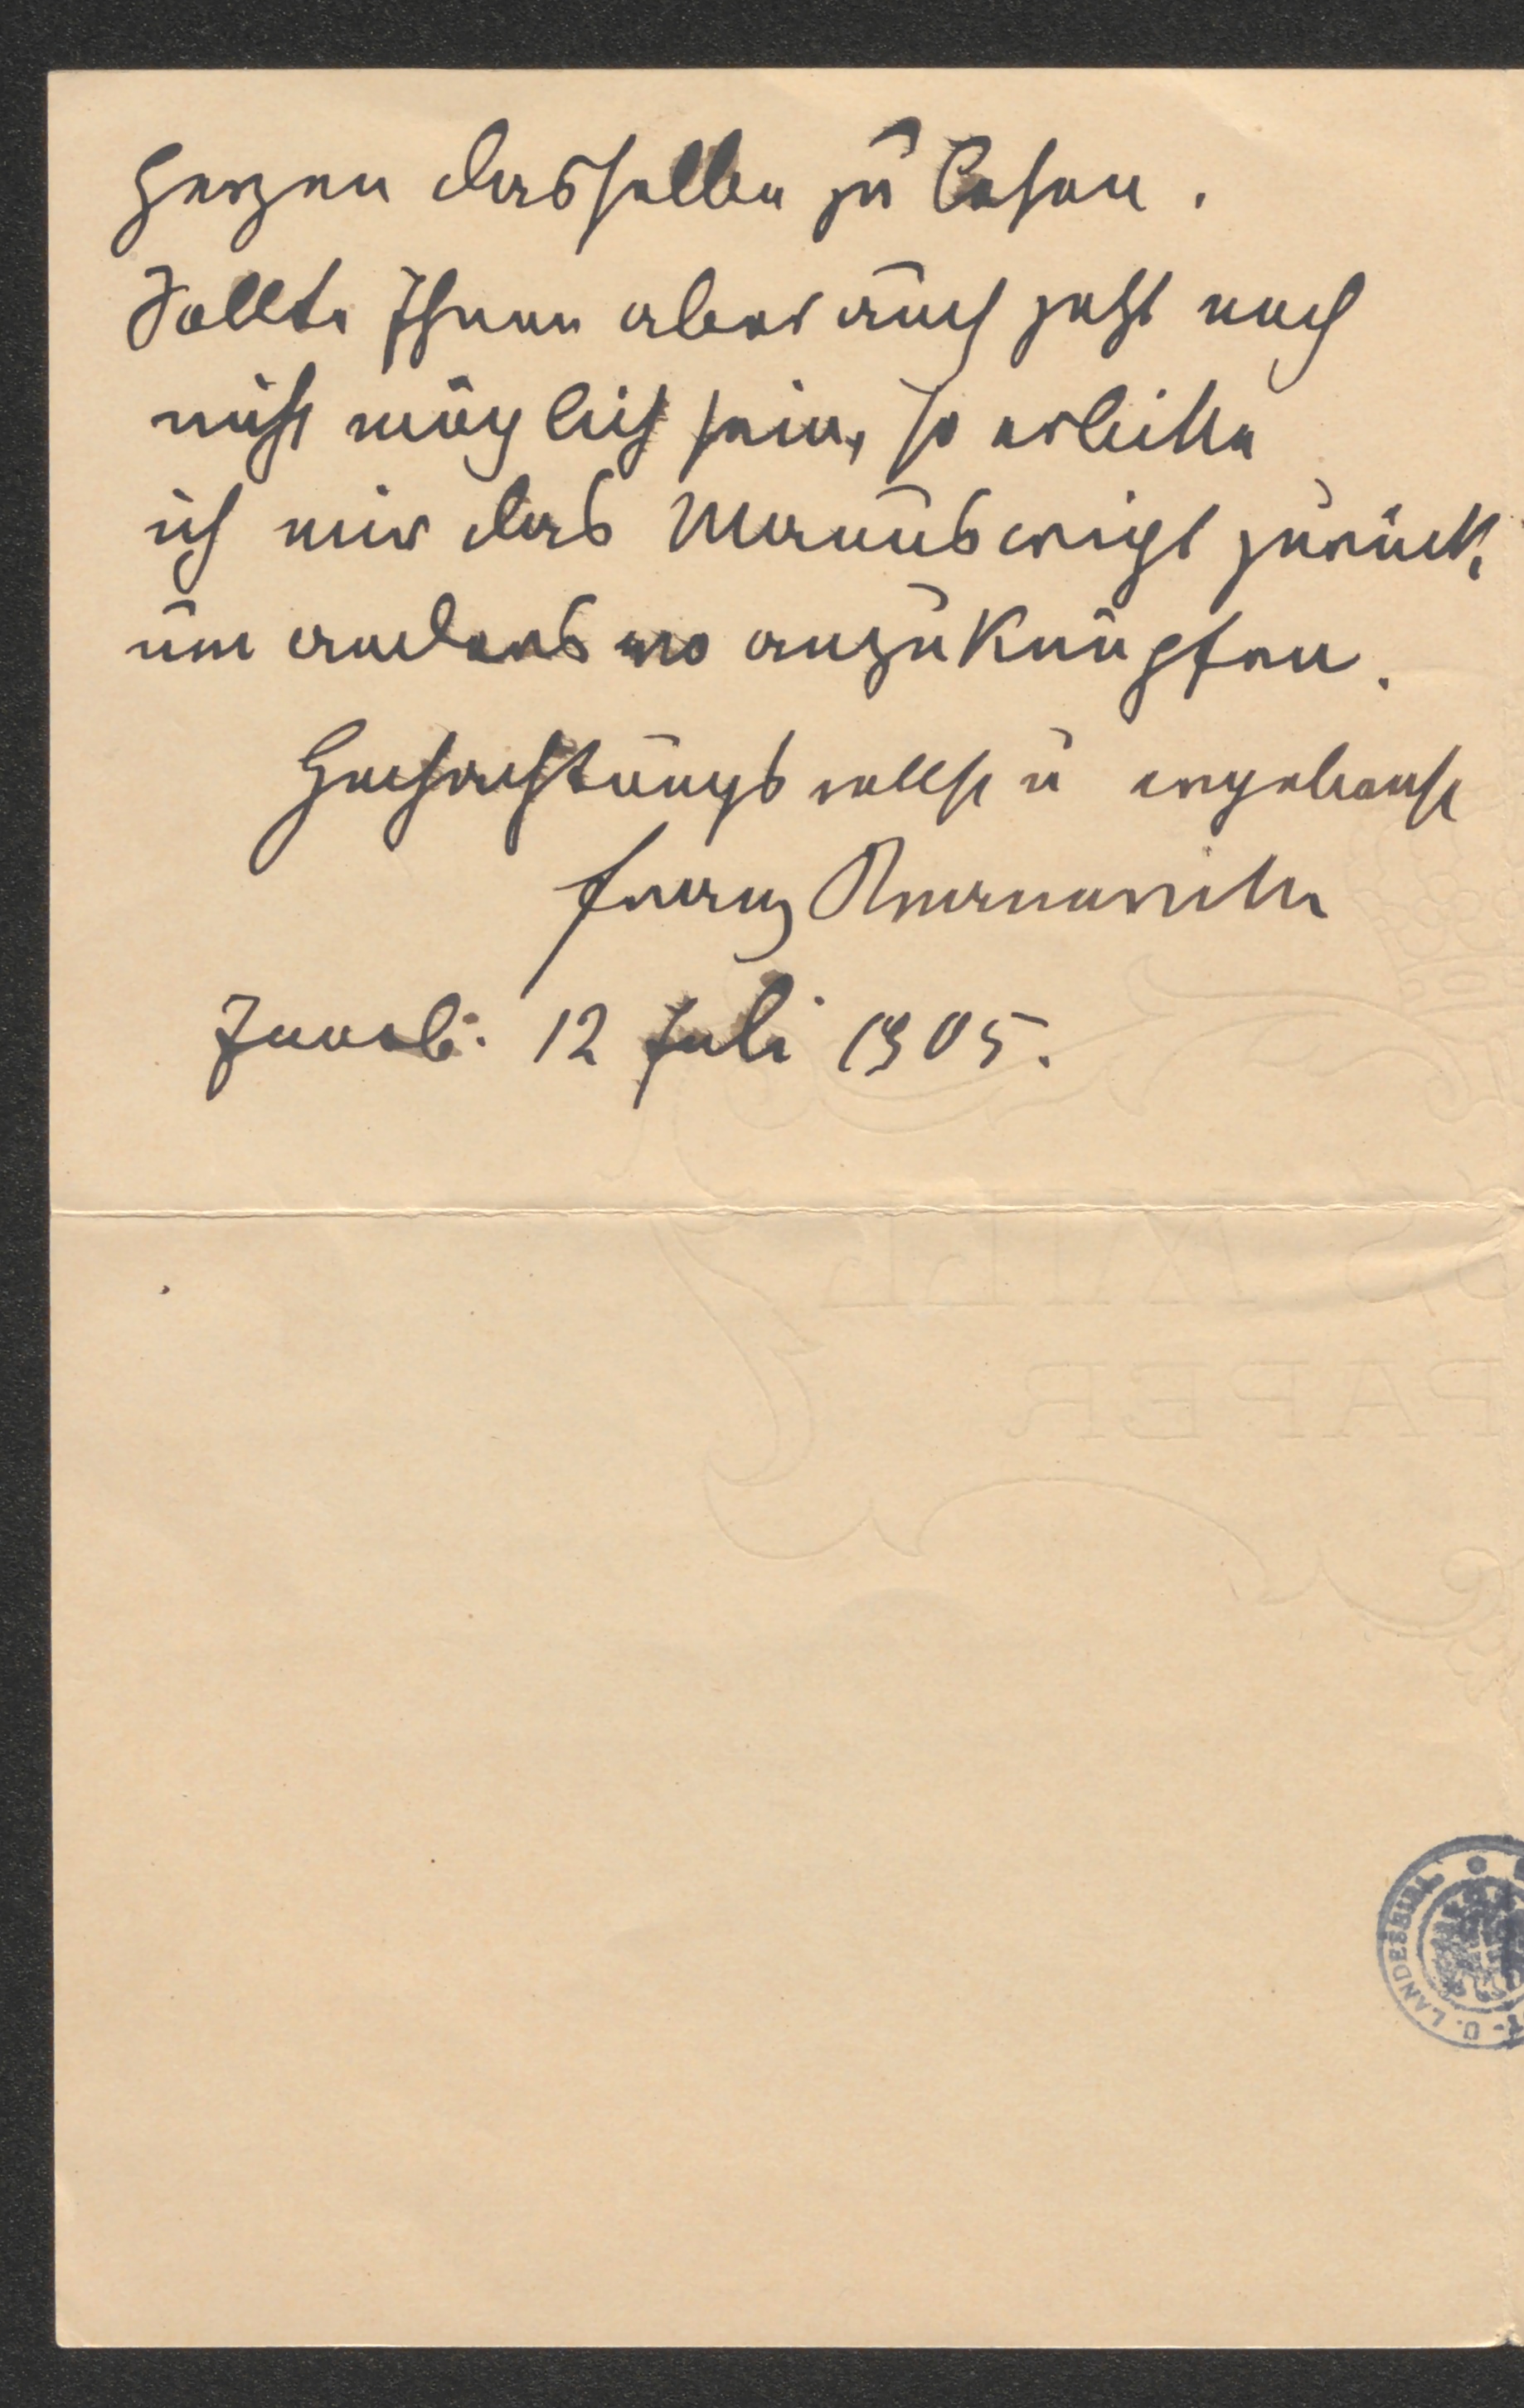 Herzen desselben zu lesen.
Sollte Ihnen aber auch jetzt noch
nicht möglich sein, so erbitte
ich mir das Manuscript zurück,
um anderswo anzuknüpfen.
Hochachtungsvollst u ergebenst
Franz Kranewitter
Innsb: 12 Juli 1905.
MILL
PAPER
LANDESBIBL.